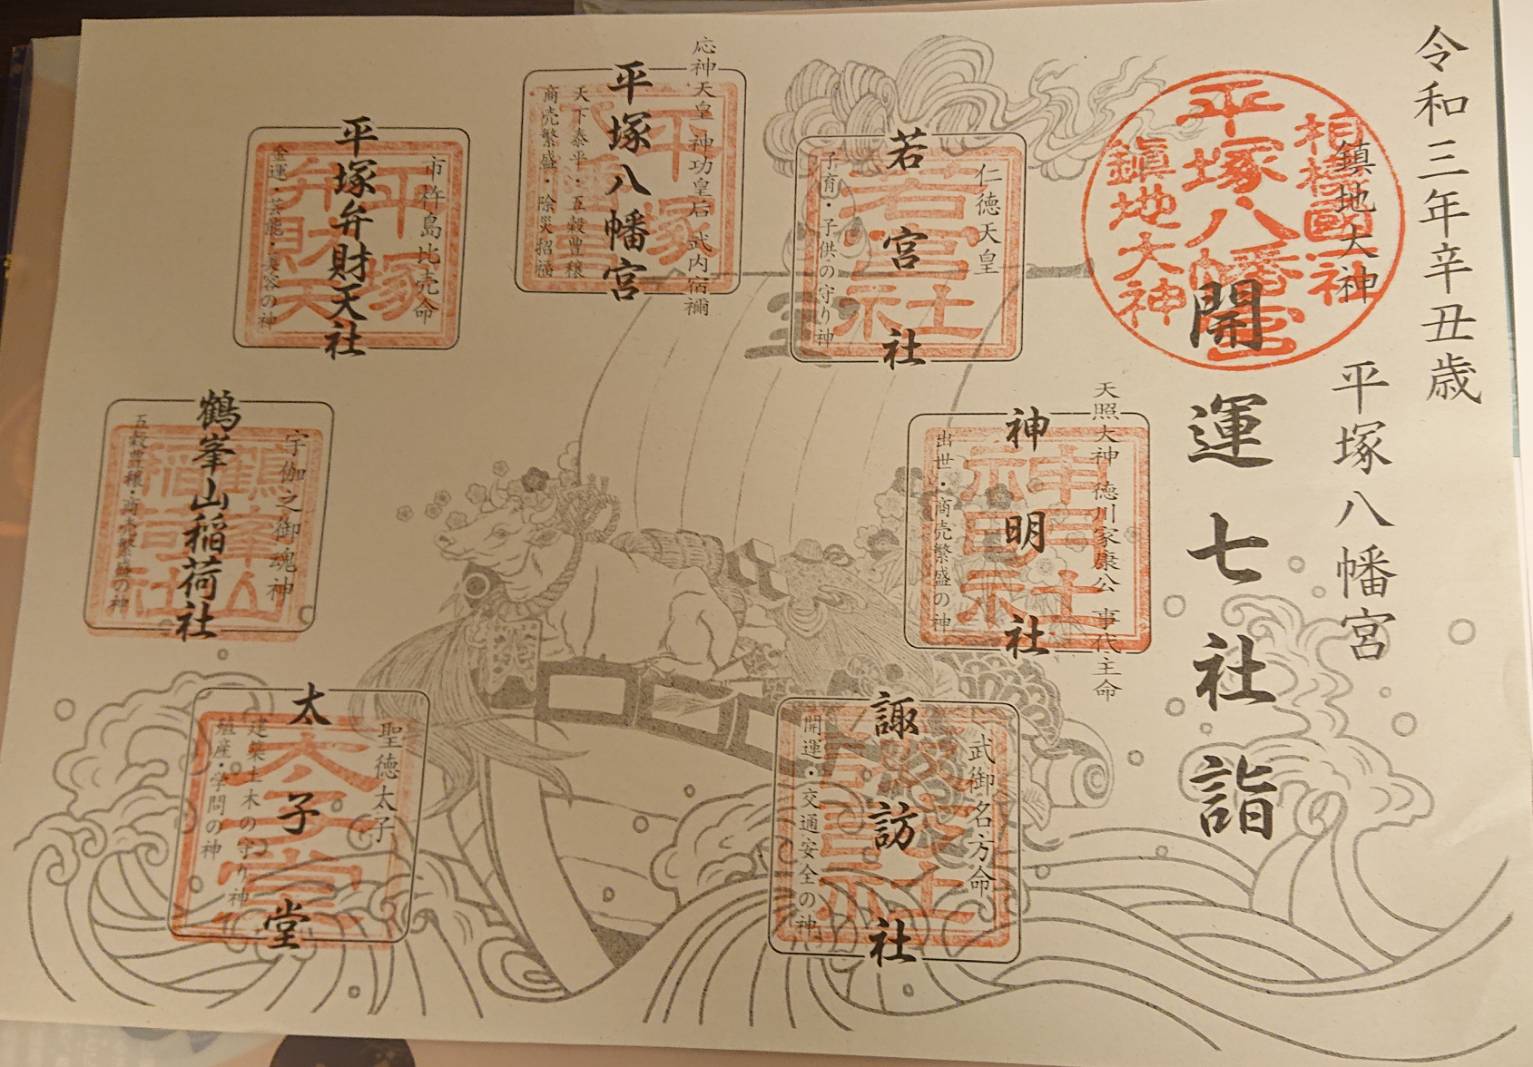 令和三年辛丑歳
鎮地大神
平塚八幡宮
相模國一国一社
平塚八幡宮
鎮地大神
開運七社詣
天照大神 徳川家康公 事代主命
神明社
出世・商売繁盛の神
神明社
武御名方命
諏訪社
開運・交通安全の神
仁徳天皇
若宮社
子育・子供の守り神
若宮社
応神天皇 神功皇后 武内宿禰
平塚八幡宮
天下泰平・五穀豊穣
商売繁盛・除災招福
平塚
市杵島比売命
平塚弁財天社
金運・芸能・美容の神
平塚
弁財天
宇伽之御魂神
鶴峯山稲荷社
五穀豊穣・商売繁盛の神
鶴峯山
稲荷社
聖徳太子
太子堂
建築土木の守り神
殖産・学問の神
太子堂